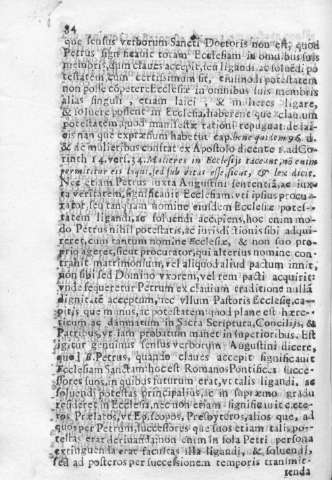 84
que sensus verborum Sancti Doctoris non est, quod
Petrus significavit totam Ecclesiam in omnibus suis
membris, dum claves accepit, seu ligandi ac solvendi po
testatem, cum certissimum sit, eiusmodi potestatem
non posse competere Ecclesiæ in omnibus suis membris
alias singuli, etiam laici, & mulieres ligare,
& solvere possent in Ecclesia, haberent que clavium
potestatem, quod manifestæ rationi repugnat de laicis
nan que expræssum habetur cap. bene quidem 96.
& de mulieribus constat ex Apostolo dicente 1. ad Co
rinth 14. vers. 34. Mulieres in Ecclesijs taceant, nõ enim
permittitur eis loqui, sed sub ditas esse, sicut, & lex dicit.
Nec etiam Petrus iuxta Augustini sententiã, ac iux
ta veritatem, significavit Ecclesiam, vel ipsius procu
rator, seu tanquam nomine eiusdem Ecclesiæ potes-
tatem ligandi, ac solvendi accipiens, hoc enim mo-
do Petrus nihil potestatis, ac iurisdictionis sibi adqui
reret, cum tantum nomine Ecclesiæ, & non suo pro
prio ageret, sicut procurator, qui alterius nomine con
trahit matrimonium, vel aliquod aliud pactum innit,
non sibi sed Domino vxorem, vel rem pacti acquirit:
vnde sequeretur Petrum ex clauium traditione nullã
dignitatẽ accepturum, nec vllum Pastoris Ecclesiæ, ca-
pitis que munus, ac potestatem quod plane est hære-
ticum ac damnatum in Sacra Scriptura, Concilijs, &
Patribus, vt iam probatum manet in superioribus. Est
igitur genuinus sensus verborum Augustini dicere,
quod B. Petrus, quando claves accepit significauit
Ecclesiam Sanctam hoc est Romanos Pontifices succe-
ssores suos, in quibus futurum erat, vt talis ligandi, ac
soluendi potestas principalius, ac in supræmo gradu
resideret in Ecclesia, nec non etiam significauit cæte-
ros Prælatos, vt Episcopos, Præbyteros, alios que, ad
quos per Petrum, successores que suos etiam talis po-
testas erat derivanda, non enim in sola Petri persona
extinguenda erat facultas illa ligandi, & soluendi,
sed ad posteros per successionem temporis transmit-
tenda